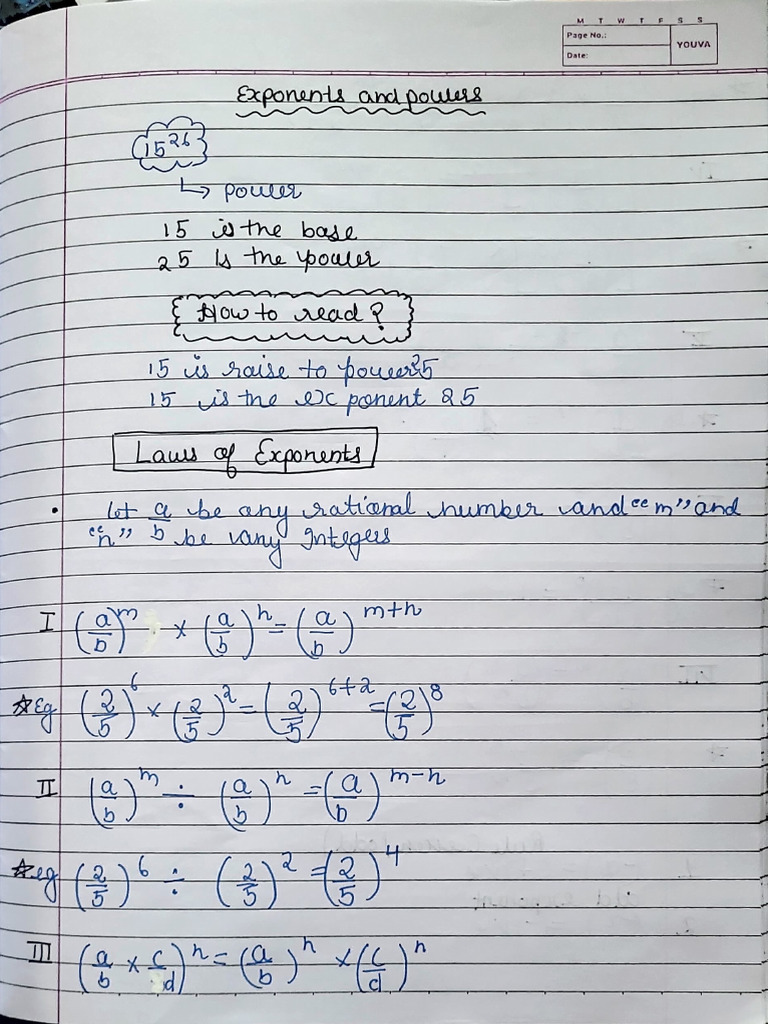 M T W T F S S
Page No.:
YOUVA
Date:
Exponents and powers
15²⁶
↳ power
15 is the base
25 Is the power
How to read?
15 is raise to power 25
15 is the exponent 25
Laws of Exponents
• Let a/b be any rational number and "m" and
"n" be any Integers
I (a/b)^m × (a/b)^n = (a/b)^m+n
☆Eg (2/5)^6 × (2/5)^2 = (2/5)^6+2 = (2/5)^8
II (a/b)^m ÷ (a/b)^n = (a/b)^m-n
☆eg (2/5)^6 ÷ (2/5)^2 = (2/5)^4
III (a/b × c/d)^n = (a/b)^n × (c/d)^n